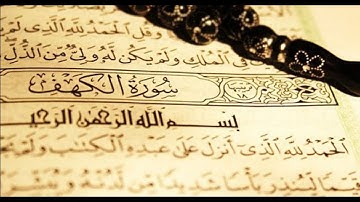 وقل الحمد لله الذى لم
فى الملك ولم يكن له ولى من الذل
سورة الكهف
بسم الله الرحمن الرحيم
الحمد لله الذى أنزل على عبده الكتاب ولم
قيما لينذر بأسا شديدا من لدنه ويبشر